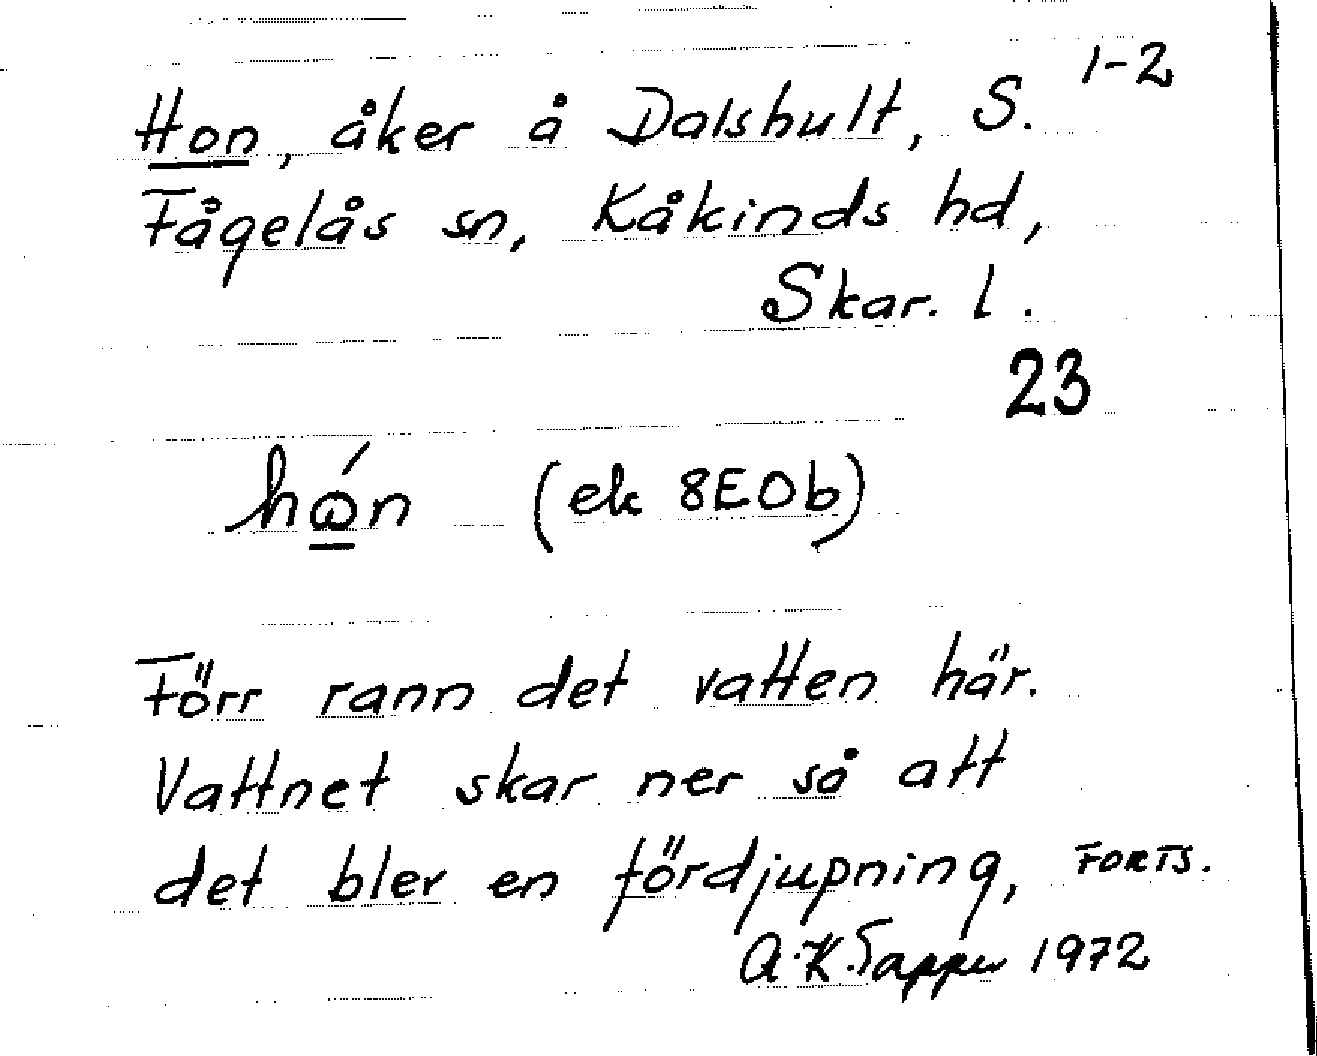 1-2
Hon, åker å Dalshult, S.
Fågelås sn, Kåkinds hd,
Skar. l.
23
(ek 8E0b)
Förr rann det vatten här.
Vattnet skar ner så att
det blev en fördjupning, FORTS.
A.K. Tapper 1972